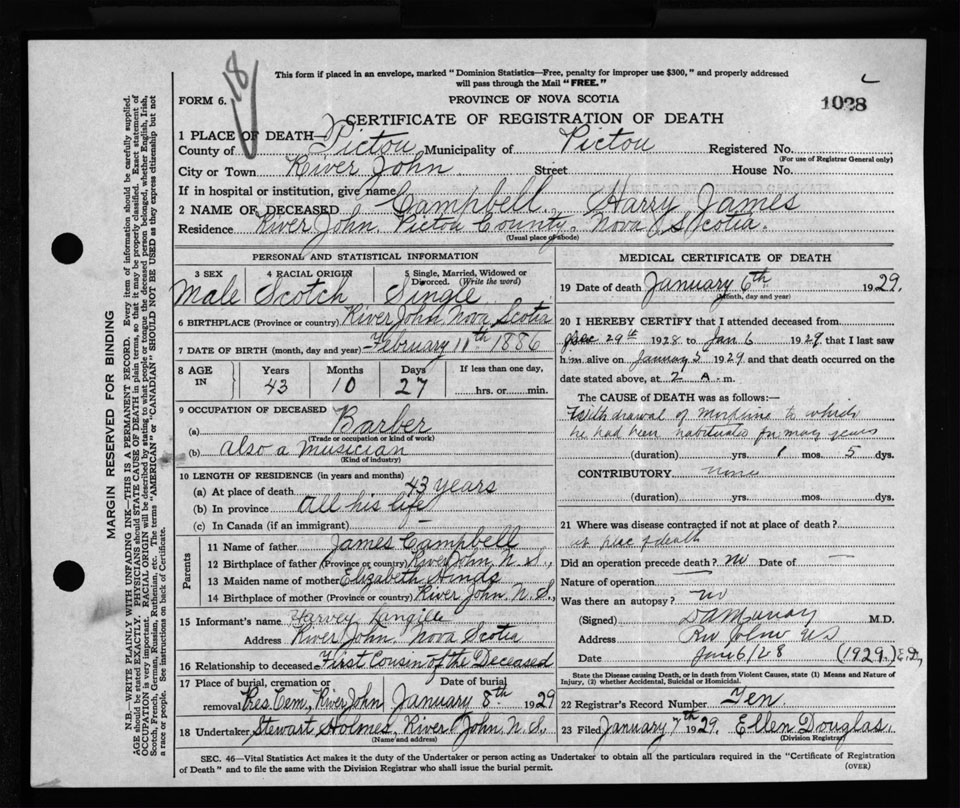 This form if placed in an envelope, marked "Dominion Statistics—Free, penalty for improper use $300," and properly addressed
will pass through the Mail "FREE."
18
FORM 6.
PROVINCE OF NOVA SCOTIA
1028
CERTIFICATE OF REGISTRATION OF DEATH
1 PLACE OF DEATH—
County of Pictou Municipality of Pictou Registered No.
(For use of Registrar General only)
City or Town River John. Street House No.
If in hospital or institution, give name
2 NAME OF DECEASED Campbell, Harry James
Residence River John, Pictou County, Nova Scotia.
(Usual place of abode)
PERSONAL AND STATISTICAL INFORMATION
3 SEX 4 RACIAL ORIGIN 5 Single, Married, Widowed or
Divorced. (Write the word)
Male Scotch Single
6 BIRTHPLACE (Province or country) River John, Nova Scotia
7 DATE OF BIRTH (month, day and year) February 11th 1886
8 AGE IN Years Months Days If less than one day,
43 10 27 hrs. or min.
9 OCCUPATION OF DECEASED
(a) Barber
(Trade or occupation or kind of work)
(b) also a Musician
(Kind of industry)
10 LENGTH OF RESIDENCE (in years and months)
(a) At place of death 43 years
(b) In province All his life
(c) In Canada (if an immigrant) —
Parents
11 Name of father James Campbell
12 Birthplace of father (Province or country) River John, N.S.,
13 Maiden name of mother Elizabeth Hinds
14 Birthplace of mother (Province or country) River John, N.S.,
15 Informant's name Harvey Langille
Address River John, Nova Scotia
16 Relationship to deceased First Cousin of the Deceased
17 Place of burial, cremation or Date of burial
removal Pres. Cem, River John January 8th 1929
18 Undertaker Stewart Holmes, River John, N.S.,
(Name and address)
MEDICAL CERTIFICATE OF DEATH
19 Date of death January 6th 1929.
(Month, day and year)
20 I HEREBY CERTIFY that I attended deceased from
Dec 29th 1928 to Jan 6 1929 that I last saw
him alive on January 5 1929 and that death occurred on the
date stated above, at 2 A. m.
The CAUSE OF DEATH was as follows:—
Withdrawal of morphine to which
he had been habituated for many years
(duration) yrs. 1 mos. 5 dys.
CONTRIBUTORY none
(duration) yrs. mos. dys.
21 Where was disease contracted if not at place of death?
at place of death
Did an operation precede death? No Date of —
Nature of operation —
Was there an autopsy? no
(Signed) Murray M.D.
Address Riv John NS
Date Jan 6/28 (1929.) E.D.
State the Disease causing Death, or in death from Violent Causes, state (1) Means and Nature of
Injury, (2) whether Accidental, Suicidal or Homicidal.
22 Registrar's Record Number Ten
23 Filed January 7th 1929. Ellen Douglas.
(Division Registrar)
SEC. 46—Vital Statistics Act makes it the duty of the Undertaker or person acting as Undertaker to obtain all the particulars required in the "Certificate of Registration
of Death" and to file the same with the Division Registrar who shall issue the burial permit.
(OVER)
MARGIN RESERVED FOR BINDING
N.B.—WRITE PLAINLY WITH UNFADING INK—THIS IS A PERMANENT RECORD. Every item of information should be carefully supplied.
AGE should be stated EXACTLY. PHYSICIANS should STATE CAUSE OF DEATH in plain terms, so that it may be properly classified. Exact statement of
OCCUPATION is very important. RACIAL ORIGIN will be described by stating to what people or tongue the deceased person belonged, whether English, Irish,
Scotch, French, German, Russian, Ruthenian, etc. The terms "AMERICAN" or "CANADIAN" SHOULD NOT BE USED as they express citizenship but not
a race or people. See instructions on back of Certificate.